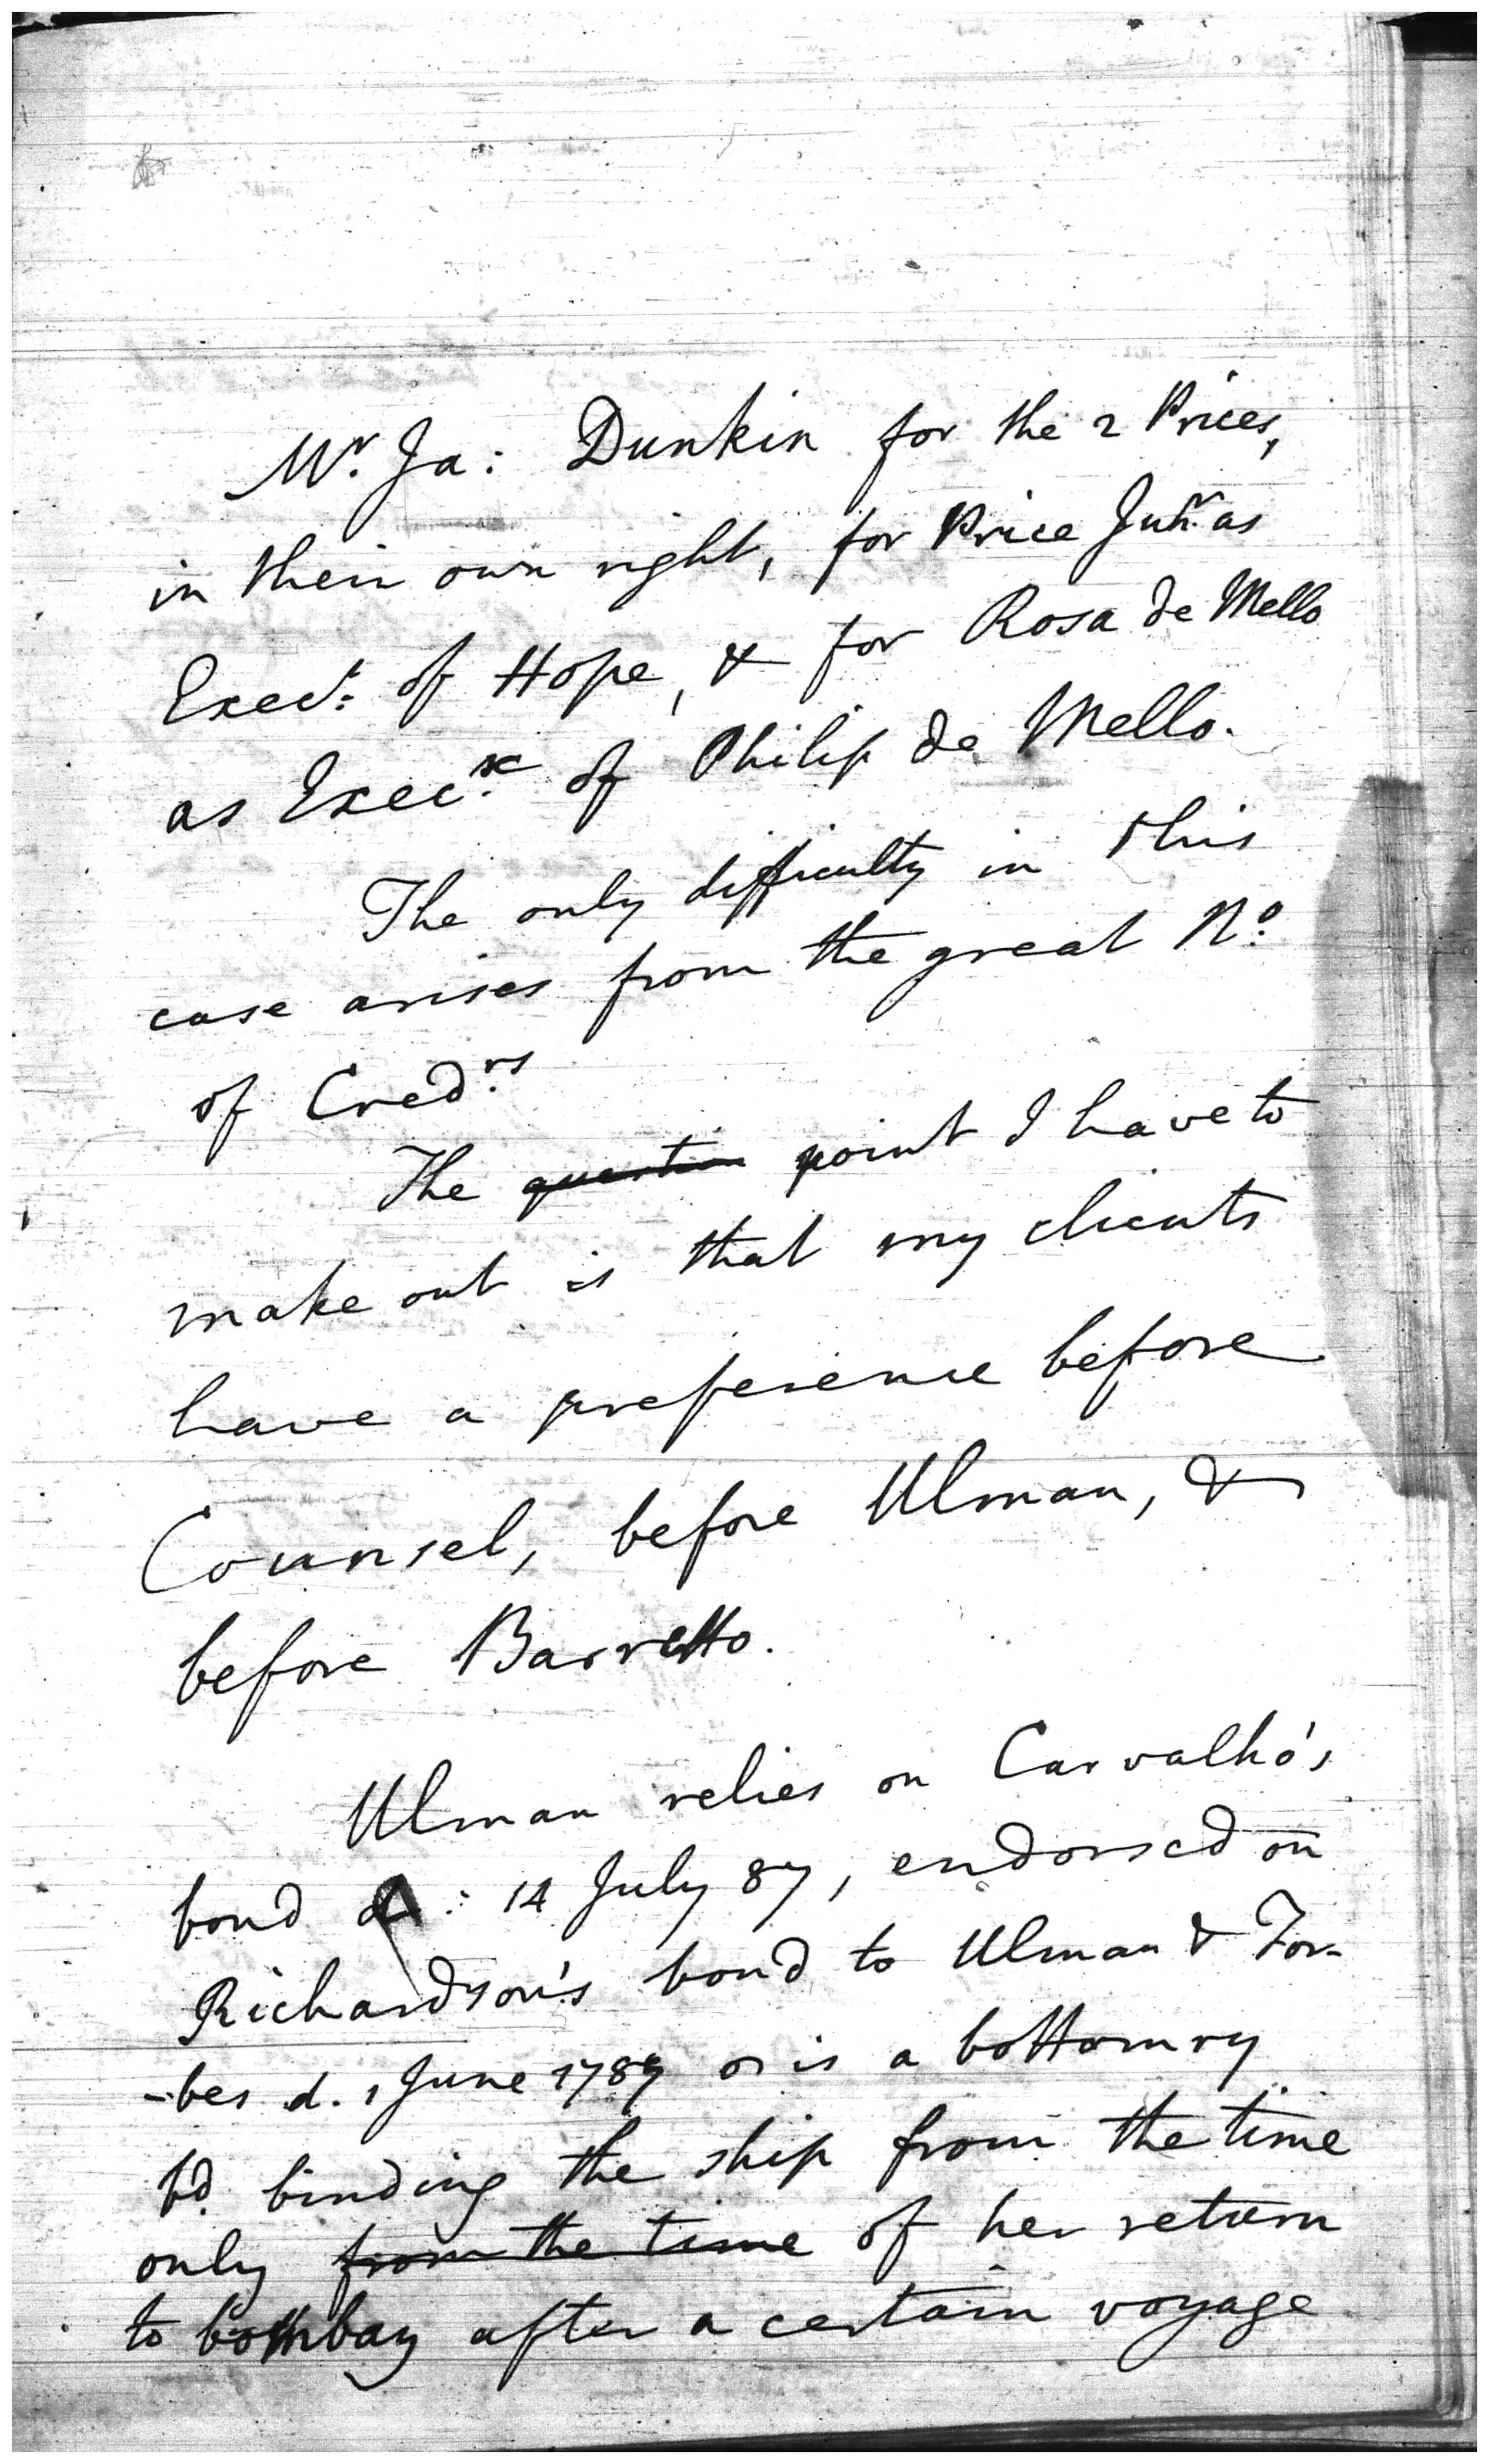 Mr. Ja: Dunkin for the 2 Prices,
in their own right, for Price Junr. as
Execr. of Hope, & for Rosa de Mello
as Execx. of Philip de Mello.
The only difficulty in this
case arises from the great No.
of Credrs.
The question point I have to
make out is that my clients
have a preference before
Counsel, before Ulman, &
before Barretto.
Ulman relies on Carvalho's
bond d: 14 July 87, endorsed on
Richardson's bond to Ulman & For-
-bes d. 1 June 1787 is a bottomry
bd. binding the ship from the time
only from the time of her return
to bombay after a certain voyage